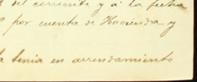 del corriente y á la fecha
por cuenta de Hacienda y
tenia en arrendamiento